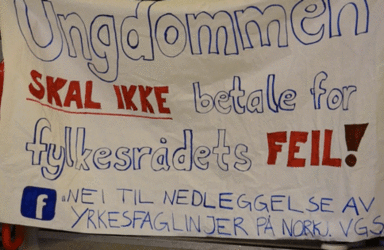 Ungdommen
SKAL IKKE betale for
fylkesrådets FEIL!
f .NEI TIL NEDLEGGELSE AV
YRKESFAGLINJER PÅ NORKJ. VGS